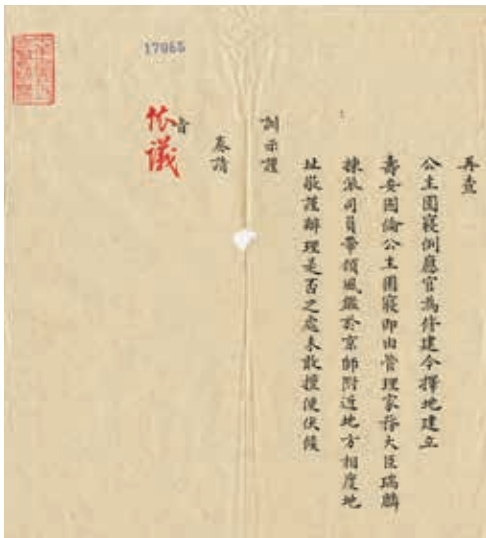 再查
公主園寢例應官為修建今擇地建立
壽安固倫公主園寢即由管理家務大臣瑞麟
揀派司員帶領風鑑於京師附近地方相度地
址敬謹辦理是否之處未敢擅便伏候
訓示謹
奏請
旨
依議
17065